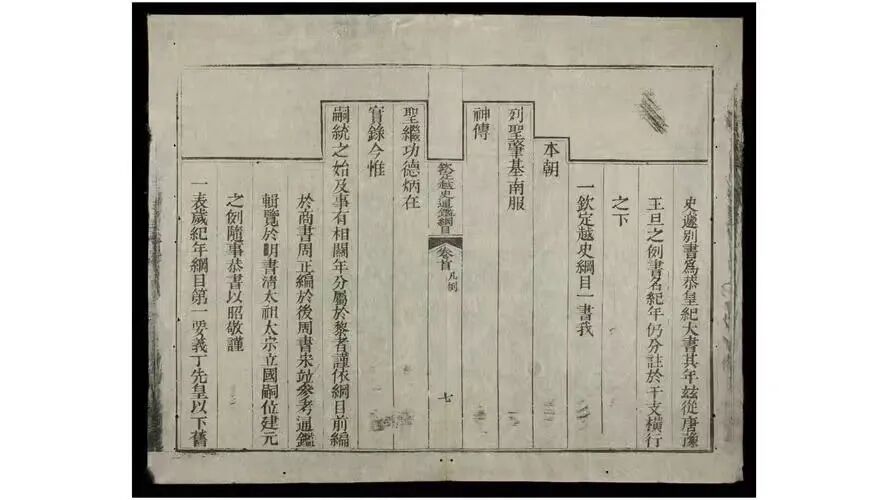 史遞別書爲恭皇紀大書其年玆從唐豫
王旦之例書名紀年仍分註於干支橫行
之下
一欽定越史綱目一書我
本朝
列聖肇基南服
神傳
欽定越史通鑑綱目 卷首 凡例 七
聖繼功德炳在
實錄今惟
嗣統之始及事有相關年分屬於黎者謹依綱目前編
於商書周正編於後周書宋竝參考通鑑
輯覽於明書清太祖太宗立國嗣位建元
之例隨事恭書以昭敬謹
一表歲紀年綱目第一要義丁先皇以下舊